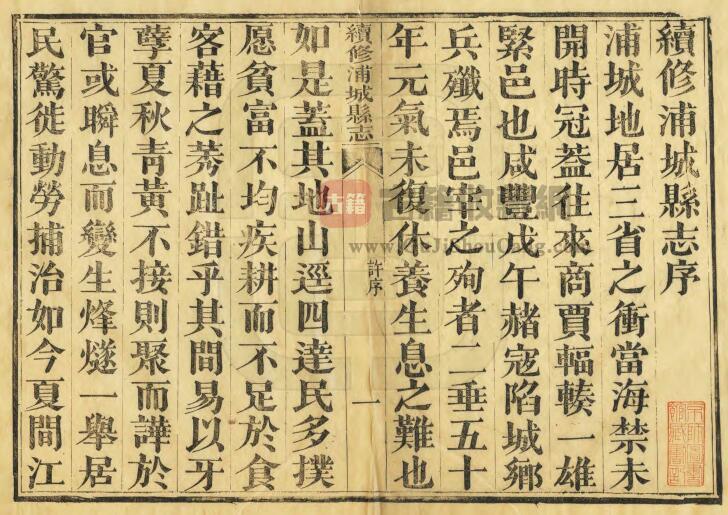 續修浦城縣志序
浦城地居三省之衝當海禁未
開時冠葢往來商賈輻輳一雄
緊邑也咸豐戊午赭寇陷城鄉
兵殲焉邑宰之殉者二垂五十
年元氣未復休養生息之難也
續修浦城縣志
許序
一
如是葢其地山逕四達民多撲
愿貧富不均疾耕而不足於食
客藉之莠趾錯乎其間易以牙
孽夏秋靑黃不接則聚而譁於
官或瞬息而變生烽燧一舉居
民驚徙動勞捕治如今夏間江
古籍
www.GuJiShouCang.com